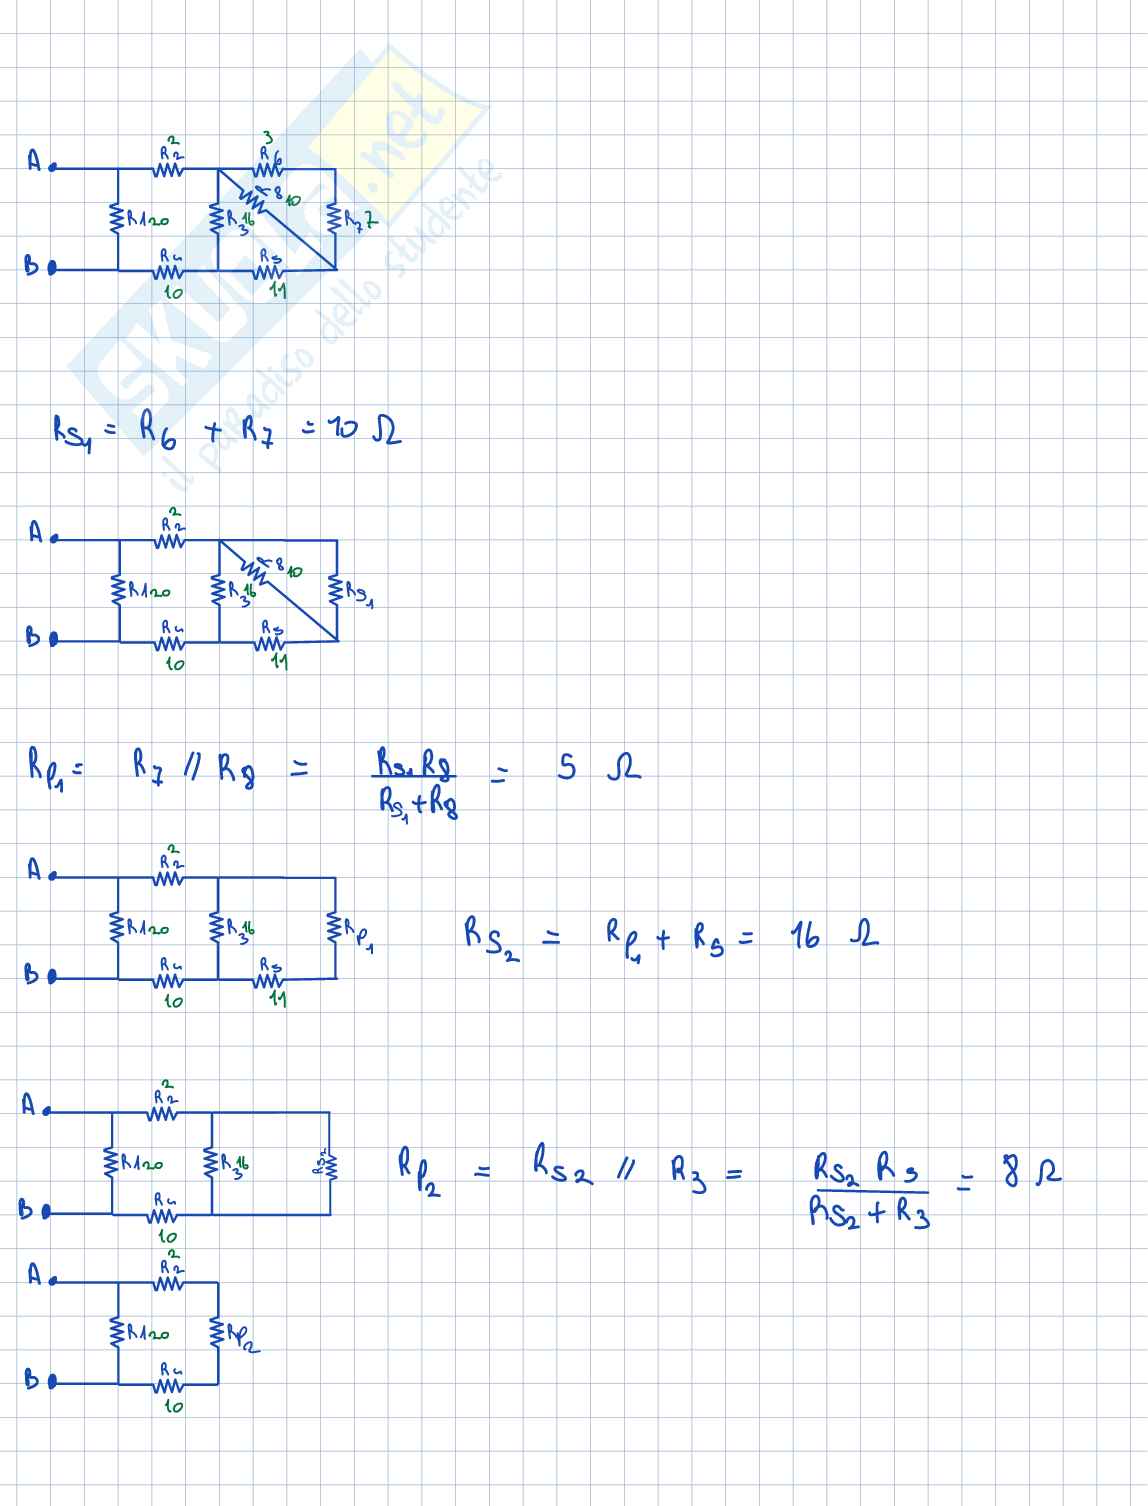 2 3
A R2 R6
R8 10
R1 20 R3 16 R7 7
B R4 R5
10 11
SKUOLA.net
il paradiso dello studente
RS1 = R6 + R7 = 10 Ω
2
A R2
R8 10
R1 20 R3 16 RS1
B R4 R5
10 11
RP1 = R7 // R8 = RS1 R8 / RS1 + R8 = 5 Ω
2
A R2
R1 20 R3 16 RP1
B R4 R5
10 11
RS2 = RP1 + R5 = 16 Ω
2
A R2
R1 20 R3 16 RS2
B R4
10
RP2 = RS2 // R3 = RS2 R3 / RS2 + R3 = 8 Ω
2
A R2
R1 20 RP2
B R4
10